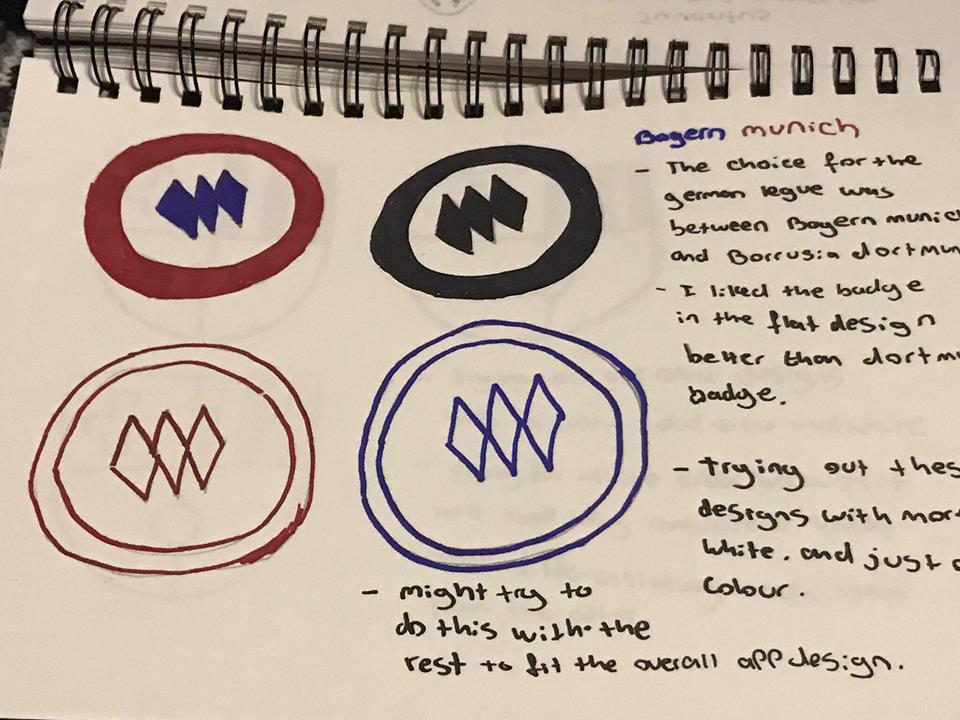 Bayern munich
- The choice for the
german legue was
between Bayern munic
and Borrusia dortmun
- I liked the badge
in the flat design
better than dortm
badge.
- trying out thes
designs with mor
white. and just
colour.
- might try to
do this with the
rest to fit the overall app design.